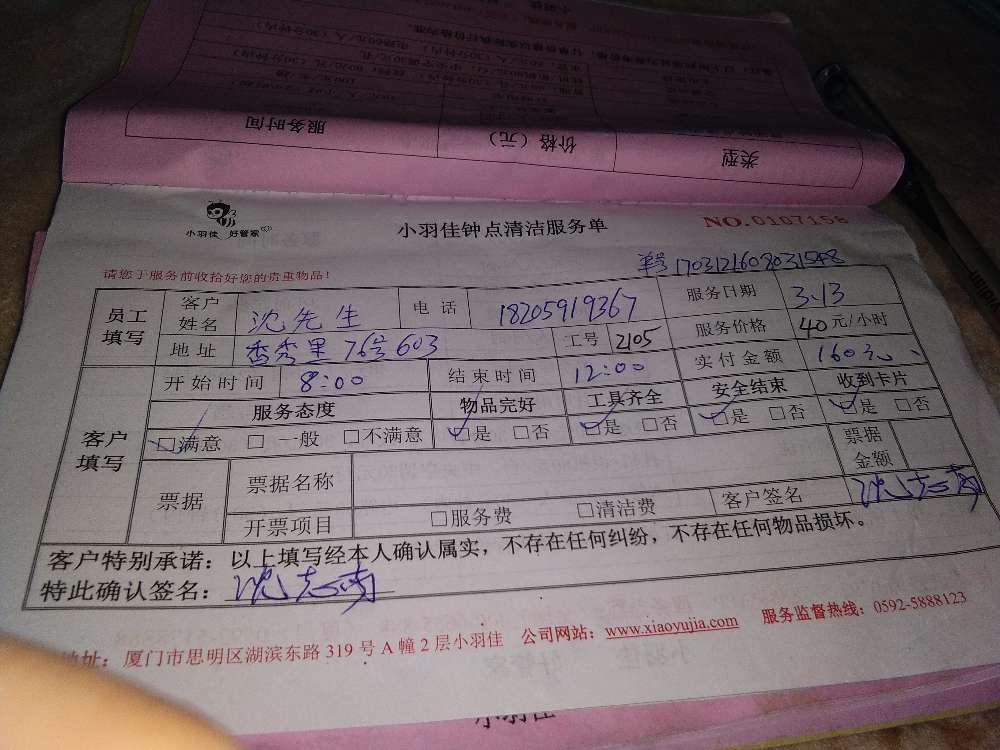 服务时间
价格（元）
类型
小羽佳 好管家
小羽佳钟点清洁服务单
NO.0107158
请您于服务前收拾好您的贵重物品！
单号1703121608031548
员工填写
客户姓名 沈先生 电话 18205919367 服务日期 3.13
地址 香秀里76号603 工号 2105 服务价格 40元/小时
客户填写
开始时间 8:00 结束时间 12:00 实付金额 160元
服务态度 物品完好 工具齐全 安全结束 收到卡片
☑满意 □一般 □不满意 ☑是 □否 ☑是 □否 ☑是 □否 ☑是 □否
票据
票据名称 票据金额
开票项目 □服务费 □清洁费 客户签名
客户特别承诺：以上填写经本人确认属实，不存在任何纠纷，不存在任何物品损坏。
特此确认签名：
地址：厦门市思明区湖滨东路319号A幢2层小羽佳 公司网站：www.xiaoyujia.com 服务监督热线：0592-5888123
小羽佳